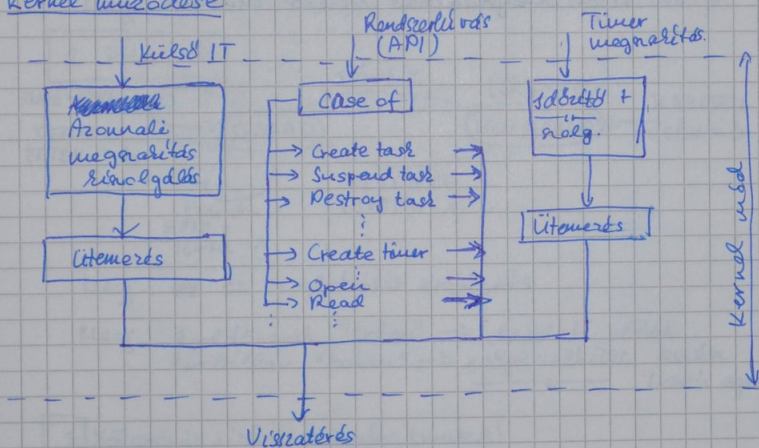 Kernel működése
Külső IT
Rendszerhívás
(API)
Timer
megszakítás.
Azonnali
megszakítás
kiszolgálás
Ütemezés
case of
Create task
Suspend task
Destroy task
Create timer
Open
Read
Időzítő +
szolg.
Ütemezés
Kernel mód
Visszatérés